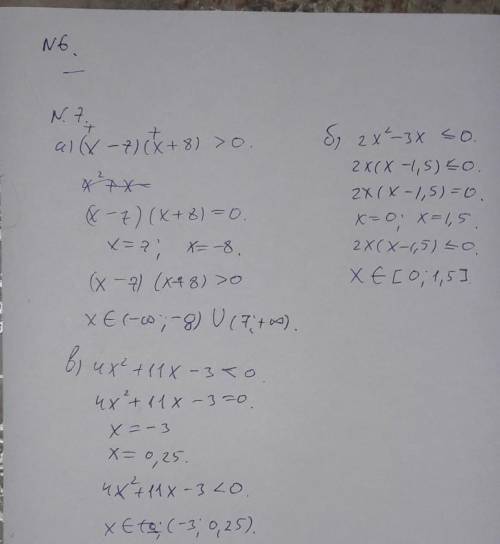 N6.
N.7.
+ +
а) (x - 7)(x + 8) > 0.
x² 7 x -
(x - 7)(x + 8) = 0.
x = 7; x = -8.
(x - 7)(x + 8) > 0
x ∈ (-∞; -8) ∪ (7; +∞).
б) 2x² - 3x ≤ 0.
2x(x - 1,5) ≤ 0.
2x(x - 1,5) = 0.
x = 0; x = 1,5.
2x(x - 1,5) ≤ 0.
x ∈ [0; 1,5]
в) 4x² + 11x - 3 < 0.
4x² + 11x - 3 = 0.
x = -3
x = 0,25.
4x² + 11x - 3 < 0.
x ∈ (-3; 0,25).